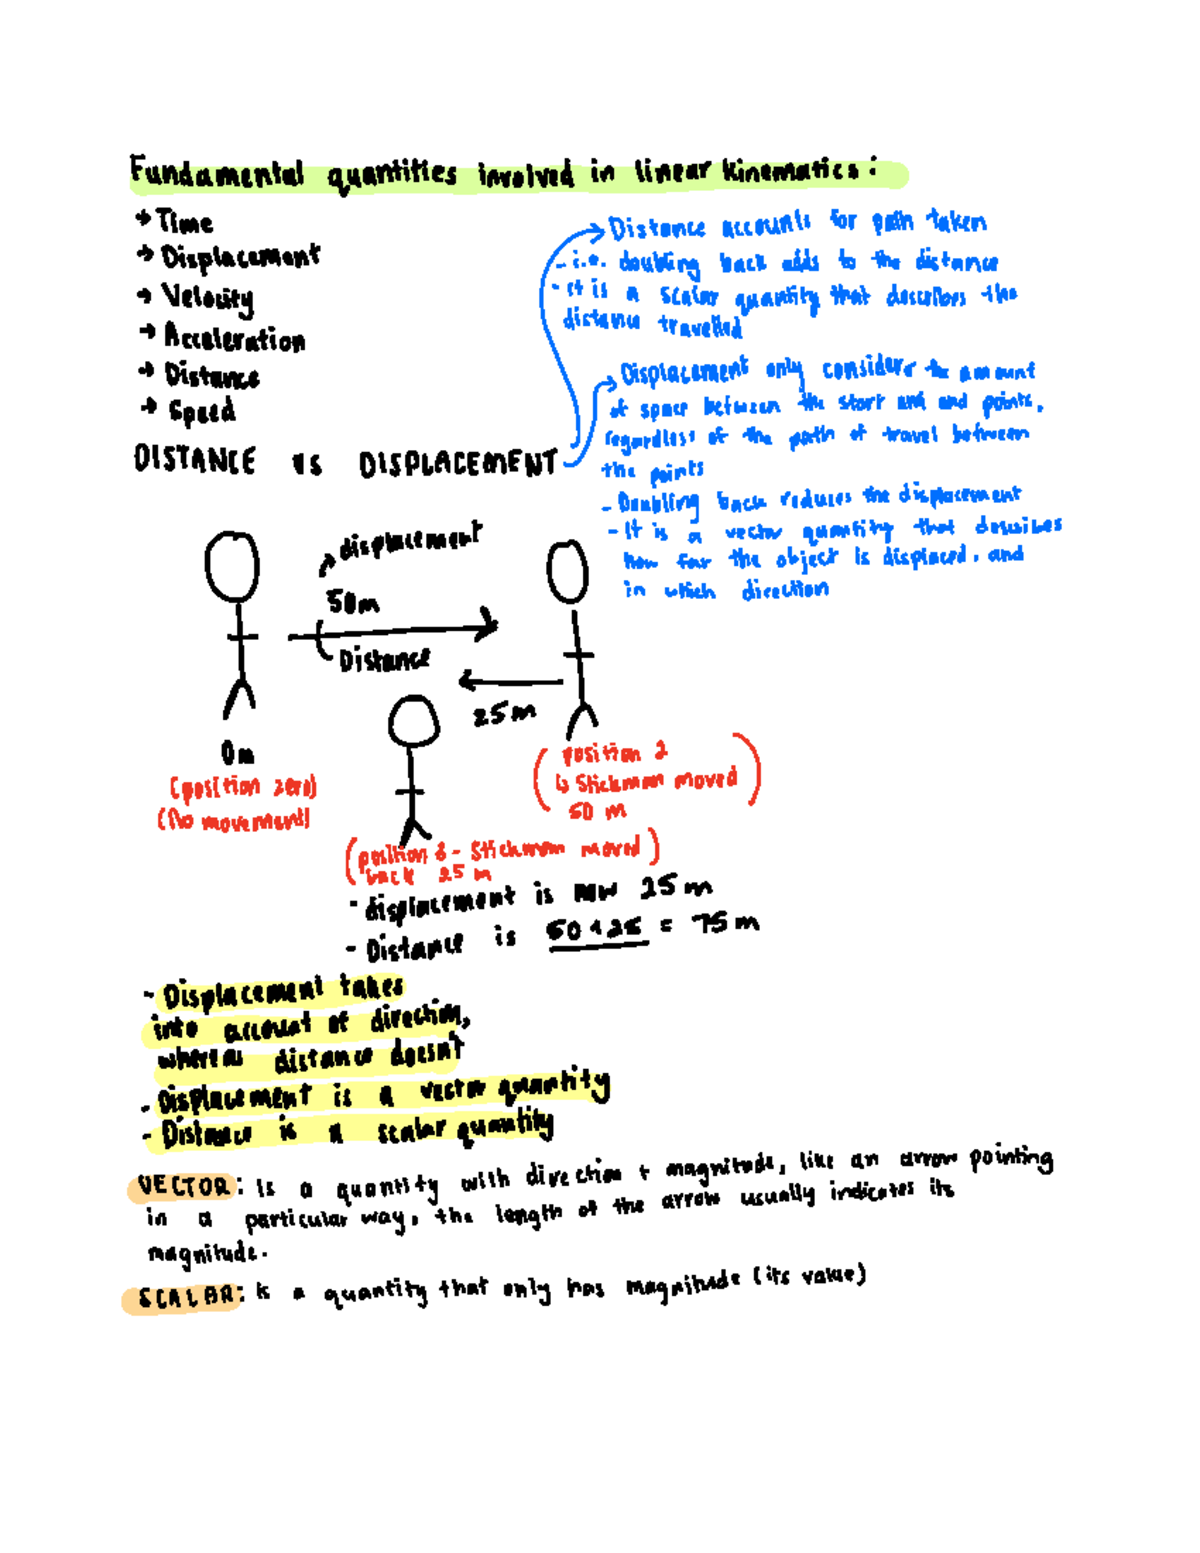 Fundamental quantities involved in linear kinematics:
→ Time
→ Displacement
→ Velocity
→ Acceleration
→ Distance
→ Speed
DISTANCE vs DISPLACEMENT
→ Distance accounts for path taken
- i.e. doubling back adds to the distance
- It is a scalar quantity that describes the
distance travelled
→ Displacement only considers the amount
of space between the start and end points,
regardless of the path of travel between
the points
- Doubling back reduces the displacement
- It is a vector quantity that describes
how far the object is displaced, and
in which direction
displacement
50m
Distance
25m
0m
(position zero)
(No movement)
(position 2
↳ Stickman moved
50 m)
(position 3 - Stickmam moved
back 25 m)
- displacement is now 25m
- Distance is 50+25 = 75m
- Displacement takes
into account of direction,
whereas distance doesn't
- Displacement is a vector quantity
- Distance is a scalar quantity
VECTOR: is a quantity with direction + magnitude, like an arrow pointing
in a particular way, the length of the arrow usually indicates its
magnitude.
SCALAR: is a quantity that only has magnitude (its value)